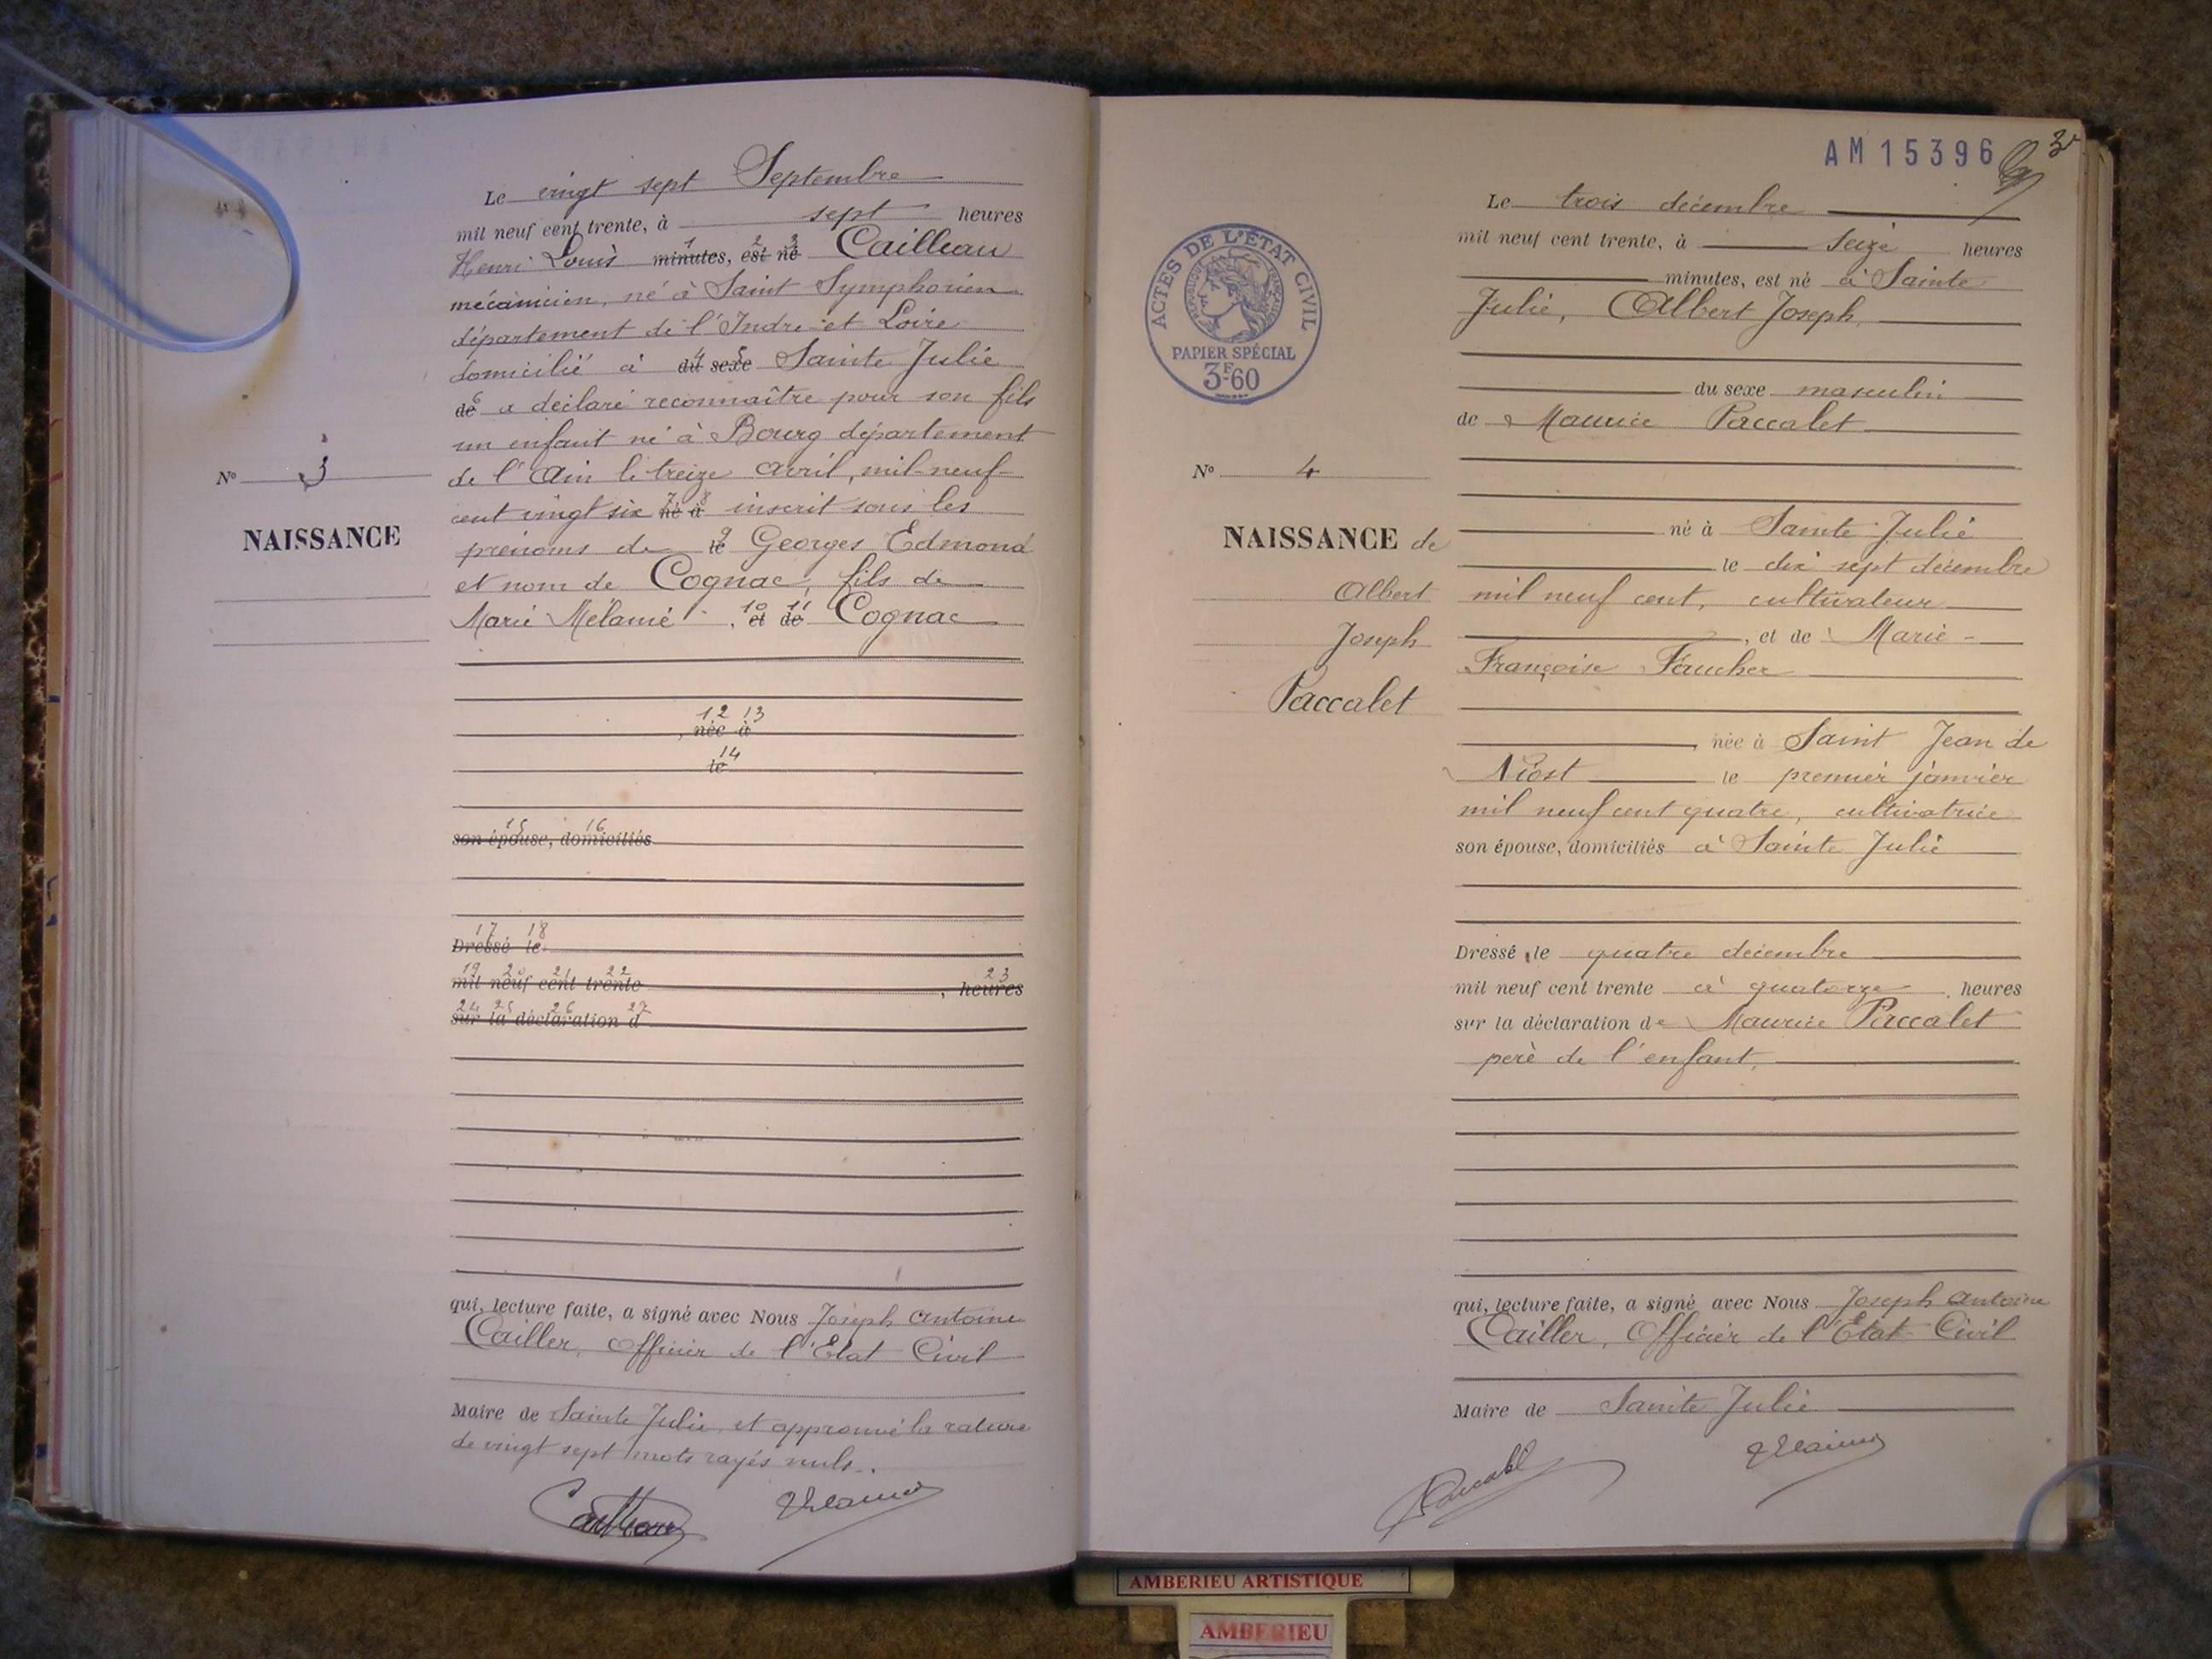 Le vingt sept Septembre
mil neuf cent trente, à sept heures
Henri Louis minutes, est né Cailleau
1 2 3
mécanicien, né à Saint Symphorien
département de l'Indre et Loire
domicilié à du sexe Sainte Julie
4 5
de a déclaré reconnaître pour son fils
6
un enfant né à Bourg département
de l'Ain le treize avril, mil neuf
cent vingt six né à inscrit sous les
7 8
prénoms de le Georges Edmond
9
et nom de Cognac, fils de
Marie Mélanie, et de Cognac
10 11
12 13
, née à
14
le
15 16
son épouse, domiciliés
17 18
Dressé le
19 20 21 22 23
mil neuf cent trente , heures
24 25 26 27
sur la déclaration d
qui, lecture faite, a signé avec Nous Joseph Antoine
Cailler, Officier de l'Etat Civil
Maire de Sainte Julie et approuvé la rature
de vingt sept mots rayés nuls.
Nº 3
NAISSANCE
AM15396
3
ACTES DE L'ÉTAT CIVIL
RÉPUBLIQUE FRANÇAISE
PAPIER SPÉCIAL
3F60
Nº 4
NAISSANCE de
Albert
Joseph
Paccalet
Le trois décembre
mil neuf cent trente, à seize heures
minutes, est né à Sainte
Julie, Albert Joseph,
du sexe masculin
de Maurice Paccalet
né à Sainte Julie
le dix sept décembre
mil neuf cent, cultivateur
, et de Marie
Françoise
, née à Saint Jean de
Niost le premier janvier
mil neuf cent quatre, cultivatrice
son épouse, domiciliés à Sainte Julie
Dressé le quatre décembre
mil neuf cent trente à quatorze heures
sur la déclaration de Maurice Paccalet
père de l'enfant,
qui, lecture faite, a signé avec Nous Joseph Antoine
Cailler, Officier de l'Etat Civil
Maire de Sainte Julie
AMBERIEU ARTISTIQUE
AMBERIEU